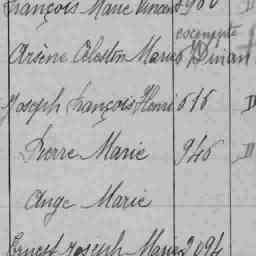 François Marie Vincent
exempté
Arsène Célestin Marie Dinan
Joseph François Henri 616
Pierre Marie 946
Ange Marie
Ernest Joseph Marie 2094